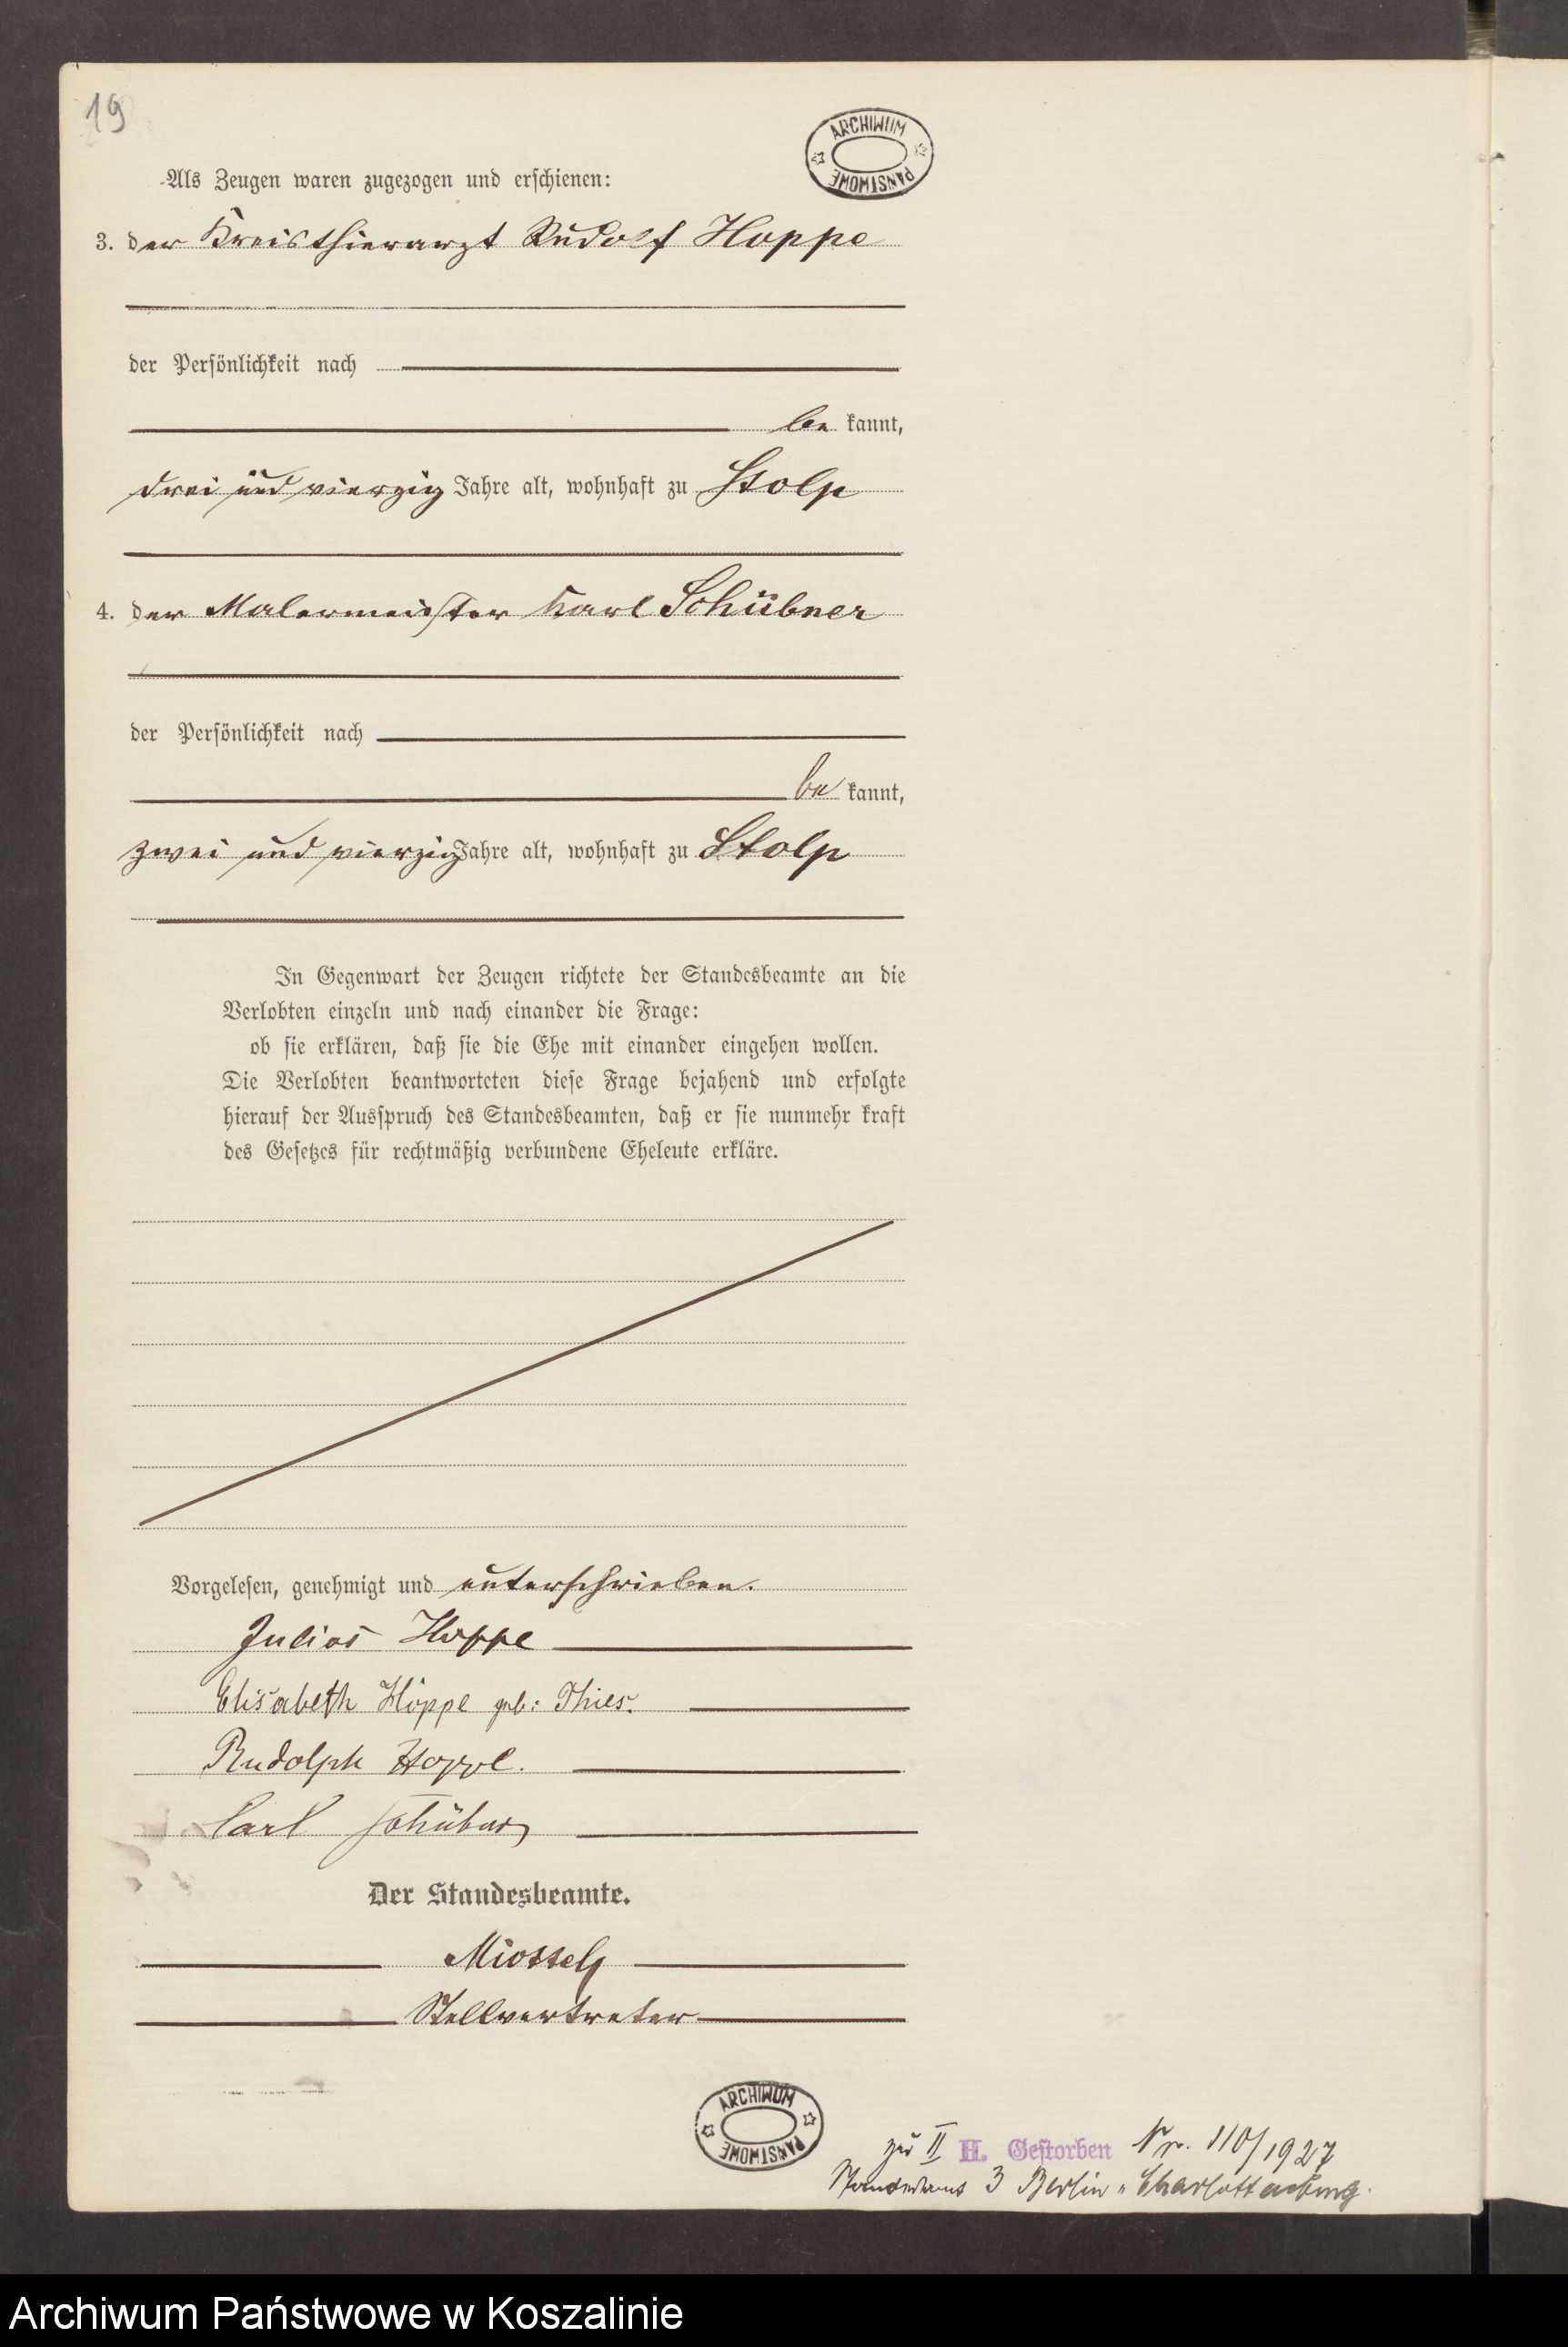 19
ARCHIWUM PAŃSTWOWE
Als Zeugen waren zugezogen und erschienen:
3. der Kreisthierarzt Rudolf Hoppe
der Persönlichkeit nach
be kannt,
drei und vierzig Jahre alt, wohnhaft zu Stolp
4. der Malermeister Karl Schübner
der Persönlichkeit nach
be kannt,
zwei und vierzig Jahre alt, wohnhaft zu Stolp
In Gegenwart der Zeugen richtete der Standesbeamte an die
Verlobten einzeln und nach einander die Frage:
ob sie erklären, daß sie die Ehe mit einander eingehen wollen.
Die Verlobten beantworteten diese Frage bejahend und erfolgte
hierauf der Ausspruch des Standesbeamten, daß er sie nunmehr kraft
des Gesetzes für rechtmäßig verbundene Eheleute erkläre.
Vorgelesen, genehmigt und unterschrieben.
Julius Hoppe
Elisabeth Hoppe geb: Thies.
Rudolph Hoppe.
Carl Schübner
Der Standesbeamte.
Stellvertreter
ARCHIWUM PAŃSTWOWE
zu II H. Gestorben Nr. 110/1927
Standesamt 3 Berlin-Charlottenburg.
Archiwum Państwowe w Koszalinie